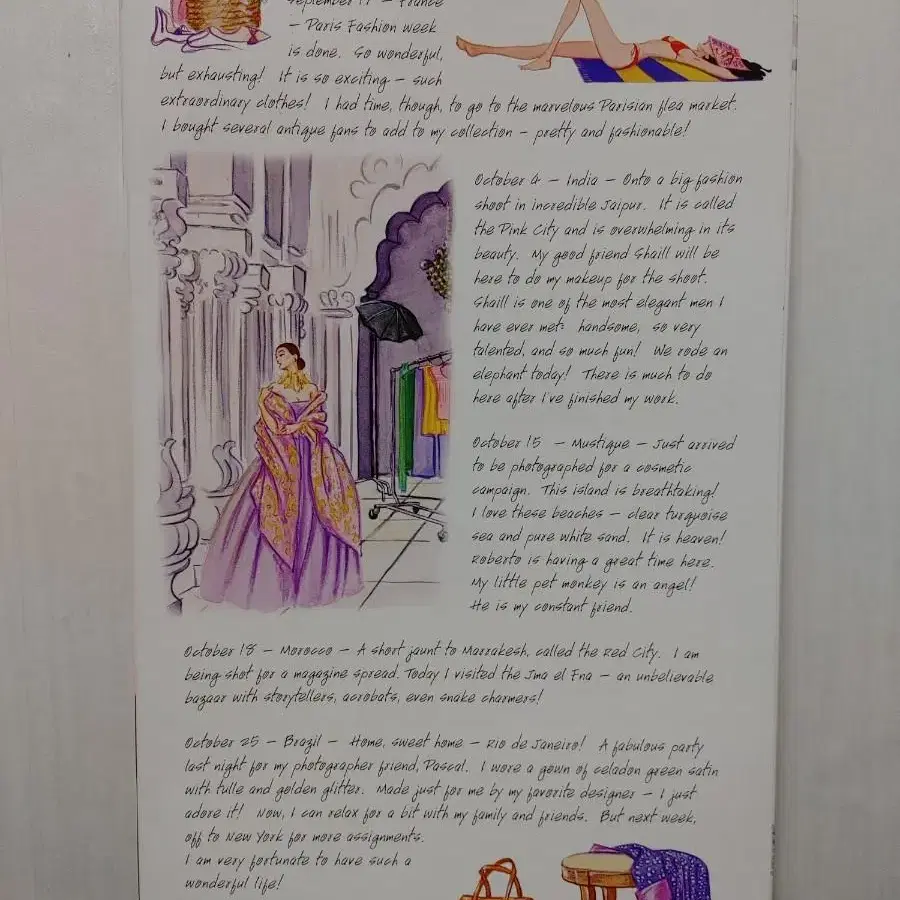 September 17 – France
– Paris Fashion week
is done. So wonderful,
but exhausting! It is so exciting – such
extraordinary clothes! I had time, though, to go to the marvelous Parisian flea market.
I bought several antique fans to add to my collection – pretty and fashionable!
October 4 – India – Onto a big fashion
shoot in incredible Jaipur. It is called
the Pink City and is overwhelming in its
beauty. My good friend Shaill will be
here to do my makeup for the shoot.
Shaill is one of the most elegant men I
have ever met: handsome, so very
talented, and so much fun! We rode an
elephant today! There is much to do
here after I've finished my work.
October 15 – Mustique – Just arrived
to be photographed for a cosmetic
campaign. This island is breathtaking!
I love these beaches – clear turquoise
sea and pure white sand. It is heaven!
Roberto is having a great time here.
My little pet monkey is an angel!
He is my constant friend.
October 18 – Morocco – A short jaunt to Marrakesh, called the Red City. I am
being shot for a magazine spread. Today I visited the Jma el Fna – an unbelievable
bazaar with storytellers, acrobats, even snake charmers!
October 25 – Brazil – Home, sweet home – Rio de Janeiro! A fabulous party
last night for my photographer friend, Pascal. I wore a gown of celadon green satin
with tulle and golden glitter. Made just for me by my favorite designer – I just
adore it! Now, I can relax for a bit with my family and friends. But next week,
off to New York for more assignments.
I am very fortunate to have such a
wonderful life!